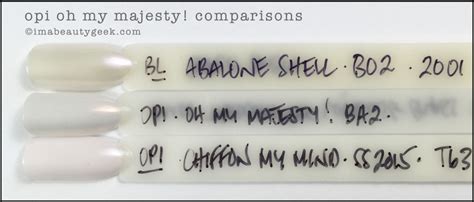 opi oh my majesty! comparisons
©imabeautygeek.com
BL ABALONE SHELL · B02 · 2001
OPI · OH MY MAJESTY! BA2.
OPI · CHIFFON MY MIND · SS2015 · T63